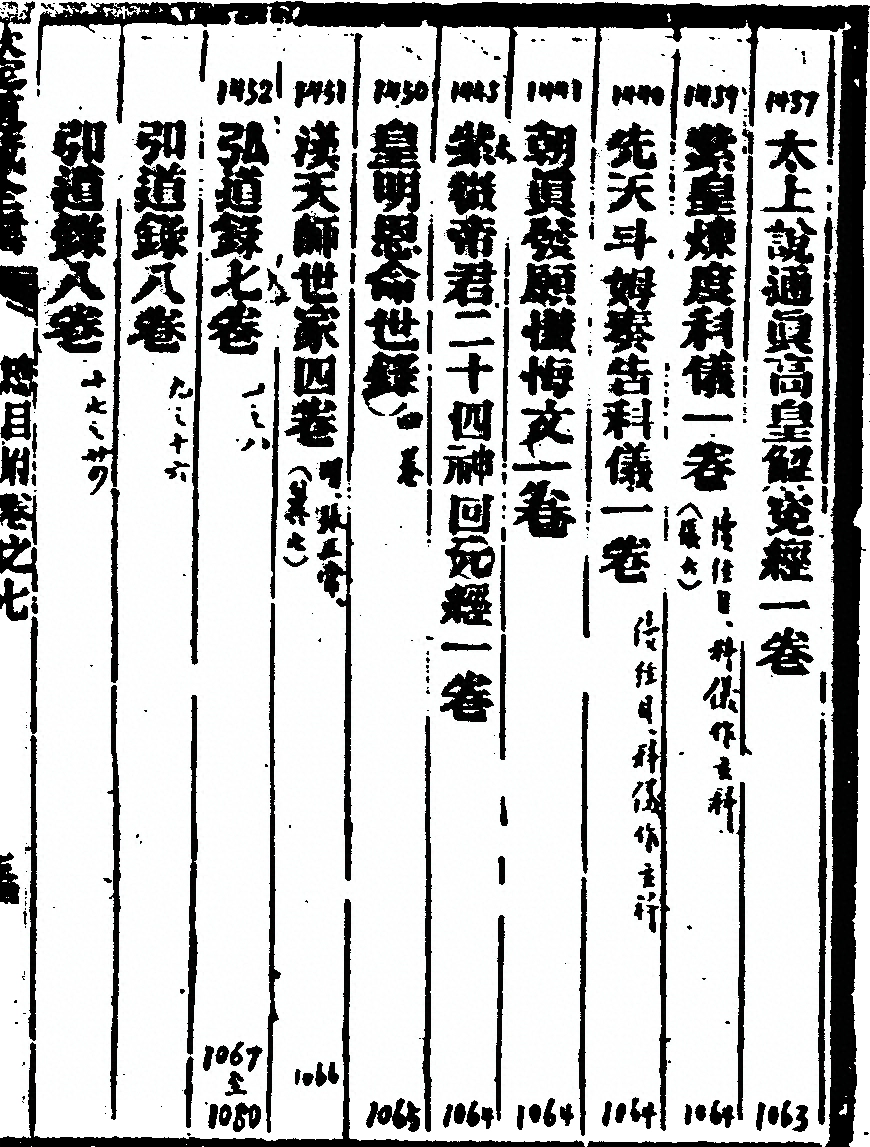 1437
太上說通眞高皇解冤經一卷
1063
1439
紫皇煉度科儀一卷
續經目、科儀作玄科
(張六)
1064
1440
先天斗姆奏告科儀一卷
續經目、科儀作玄科
1064
1441
朝眞發願懺悔文一卷
1064
1443
太
紫微帝君二十四神回元經一卷
1064
1450
皇明恩命世錄
四卷
1065
1451
漢天師世家四卷
明、張正常、
1066
1452
弘道錄七卷
一之八
1067
至
1080
弘道錄八卷
九之十六
弘道錄八卷
十七之廿四
總目附卷之七